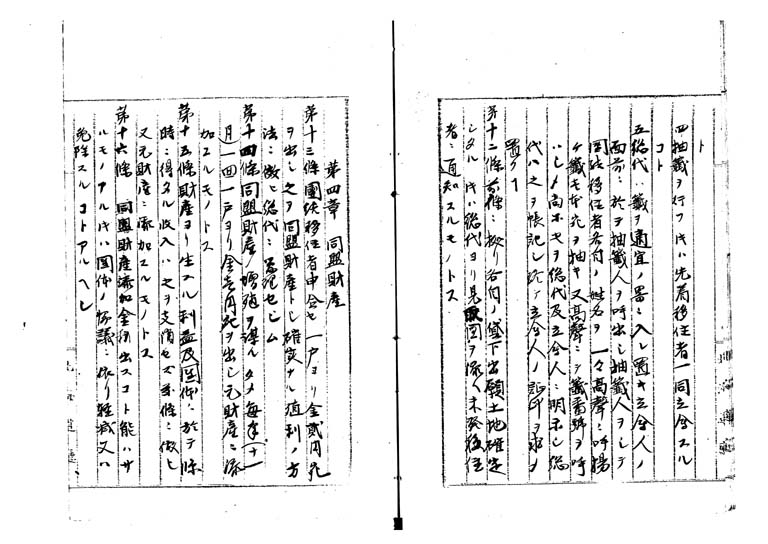 ト
四抽籤ヲ行フトキハ先着移住者一同立会スル
コト
五総代ハ籤ヲ適宜ノ器ニ入レ置キ立会人ノ
面前ニ於テ抽籤人ヲ呼出シ抽籤人ヲシテ
団体移住者各自ノ姓名ヲ一々高声ニ呼揚
ケ籤壱本宛ヲ抽キ又高声ニテ籤番號ヲ呼
ハシメ尚ホ之ヲ総代及立会人ニ明示シ総
代ハ之ヲ帳記シ於テ立会人ノ証印ヲ求メ
置ク丁
第十二條前條ニ拠リ各自ノ貸下出願土地確定
シタルトキハ総代ヨリ見取図ヲ添ヘ未発後住
者ニ通知スルモノトス
第四章 同盟財産
第十三條團体移住者申合セ一戸ヨリ金貳円宛
ヲ出シ之ヲ同盟財産トシ確実ナル殖利ノ方
法ニ依ヒ総代ニ管理セシム
第十四條同盟財産ノ増殖ヲ謀ルタメ毎年(十一
月)一回一戸ヨリ金壱円宛ヲ出シ元財産ニ添
加スルモノトス
第十五條財産ヨリ生スル利益及団体ニ於テ臨
時ニ得タル収入ハ之ヲ支消セズ前條ニ倣ヒ
又元財産ニ添加スルモノトス
第十六條 同盟財産添加金ヲ出スコト能ハサ
ルモノアルトキハ団体ノ協議ニ依リ軽減又ハ
免除スルコトアルヘシ